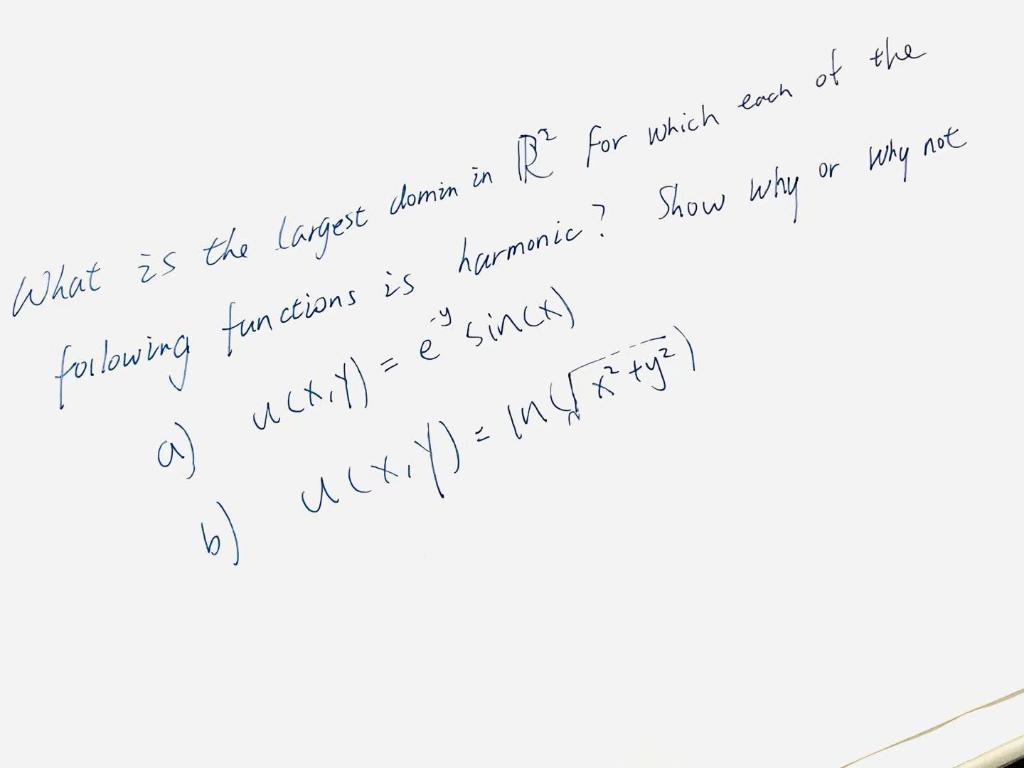 What is the largest domin in ℝ² for which each of the
following functions is harmonic? Show why or why not
a) u(x,y) = e^-y sin(x)
b) u(x,y) = ln(√x²+y²)